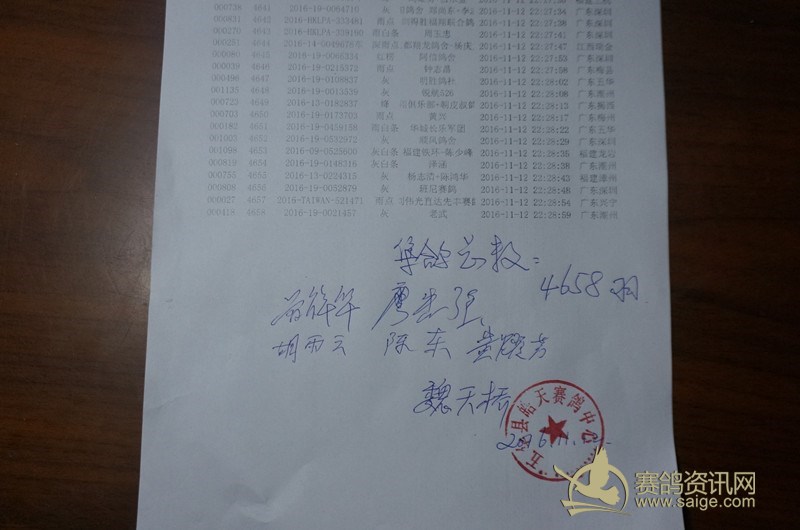 000738 4641 2016-19-0064710 灰
000831 4642 雨点 2016-11-12 22:27:34 广东深圳
000270 4643 雨白条 2016-11-12 22:27:41 广东深圳
000251 4644 2016-11-12 22:27:47 江西瑞金
000834 4645 2016-19-0066334 2016-11-12 22:27:53 广东深圳
000039 4646 2016-19-0215372 雨点 钟志惠 2016-11-12 22:27:58 广东梅县
000496 4647 2016-19-0106837 灰 2016-11-12 22:28:02 广东五华
001135 4648 2016-19-0015539 灰 2016-11-12 22:28:08 广东潮州
000723 4649 2016-13-0182837 2016-11-12 22:28:13 广东揭西
000703 4650 2016-19-0173703 雨点 黄兴 2016-11-12 22:28:17 广东梅州
000182 4651 2016-19-0459158 雨白条 华城长乐军团 2016-11-12 22:28:22 广东五华
001005 4652 2016-19-0532972 灰 顺风鸽舍 2016-11-12 22:28:29 广东深圳
001098 4653 2016-09-0525600 灰白条 2016-11-12 22:28:35 福建龙岩
000819 4654 2016-19-0148316 灰白条 泽涵 2016-11-12 22:28:38 广东潮州
000755 4655 2016-13-0224315 灰 杨志浩+陈鸿华 2016-11-12 22:28:43 福建漳州
000858 4656 2016-19-0052879 灰 班尼赛鸽 2016-11-12 22:28:48 广东深圳
000027 4657 2015-TAIWAN-521471 雨点 2016-11-12 22:28:54 广东兴宁
000418 4658 2016-19-0021457 灰 老武 2016-11-12 22:28:59 广东潮州
集鸽总数：
4658羽
廖志强
胡雨云 陈东 黄耀芳
魏天振
五华县皓天赛鸽中心
2016.11.12.
赛鸽资讯网
www.saige.com